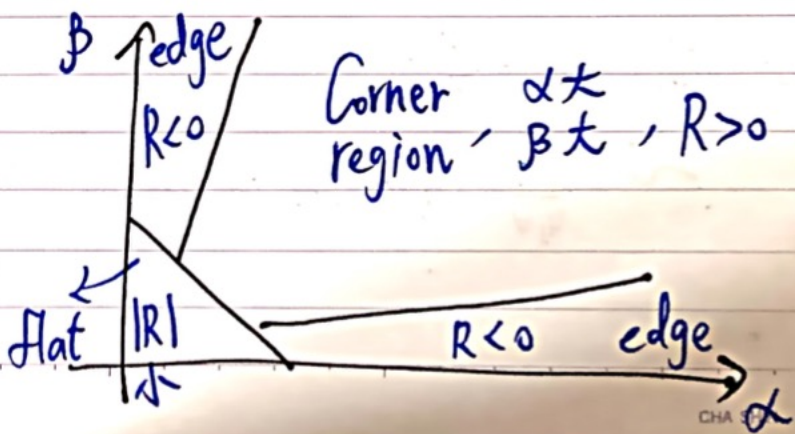 β edge
R<0
Corner region, α大 β大, R>0
flat |R|小
R<0 edge
α